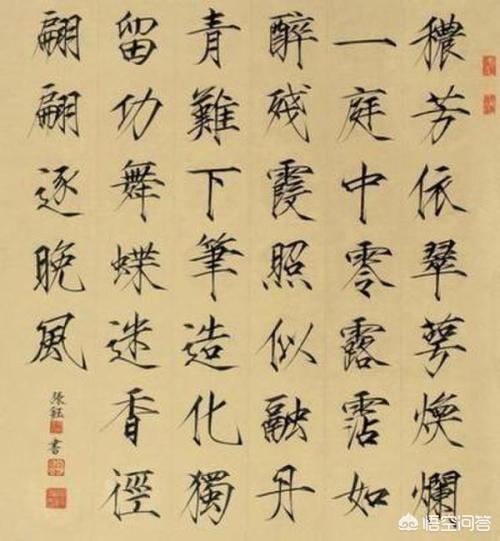 穠芳依翠萼煥爛
一庭中零露霑如
醉殘霞照似融丹
青難下筆造化獨
留功舞蝶迷香徑
翩翩逐晚風
張鈺書
悟空问答